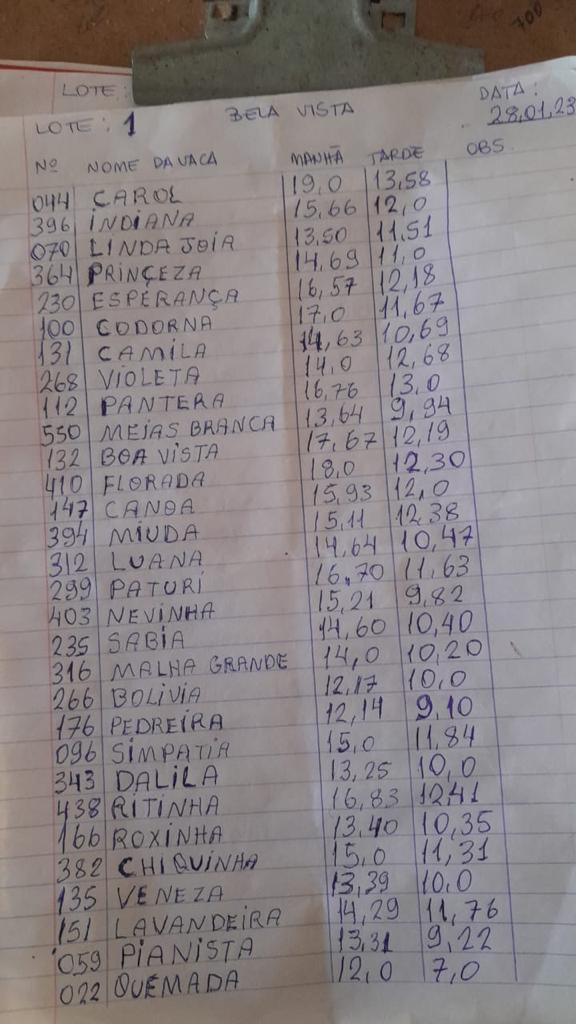 700
LOTE:
LOTE: 1 BELA VISTA DATA: 28.01.23
Nº NOME DA VACA MANHÃ TARDE OBS.
044 CAROL 19,0 13,58
396 INDIANA 15,66 12,0
070 LINDA JOIA 13,50 11,51
364 PRINÇEZA 14,69 11,0
230 ESPERANÇA 16,57 12,18
100 CODORNA 17,0 11,67
131 CAMILA 14,63 10,69
268 VIOLETA 14,0 12,68
112 PANTERA 16,76 13,0
550 MEIAS BRANCA 13,64 9,94
132 BOA VISTA 17,67 12,19
410 FLORADA 18,0 12,30
147 CANOA 15,93 12,0
394 MIUDA 15,11 12,38
312 LUANA 14,64 10,47
299 PATURI 16,70 11,63
403 NEVINHA 15,21 9,82
235 SABIA 14,60 10,40
316 MALHA GRANDE 14,0 10,20
266 BOLIVIA 12,17 10,0
176 PEDREIRA 12,14 9,10
096 SIMPATIA 15,0 11,84
343 DALILA 13,25 10,0
438 RITINHA 16,83 12,41
166 ROXINHA 13,40 10,35
382 CHIQUINHA 15,0 11,31
135 VENEZA 13,39 10,0
151 LAVANDEIRA 14,29 11,76
059 PIANISTA 13,31 9,22
022 QUEMADA 12,0 7,0